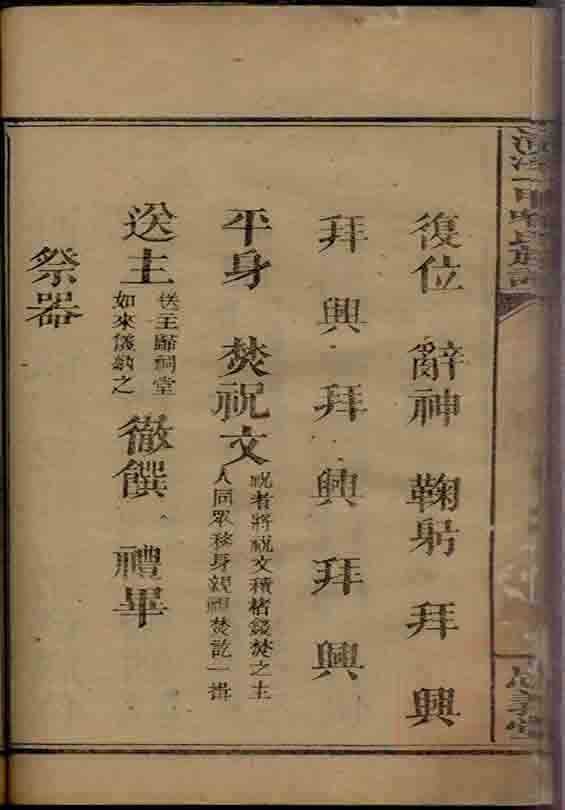 復位 辭神 鞠躬 拜 興
拜 興 拜 興 拜 興
平身 焚祝文 祝者將祝文積楮錢焚之主
人同眾移身親視焚訖一揖
送主 送主歸祠堂
如來儀納之
徹饌 禮畢
祭器